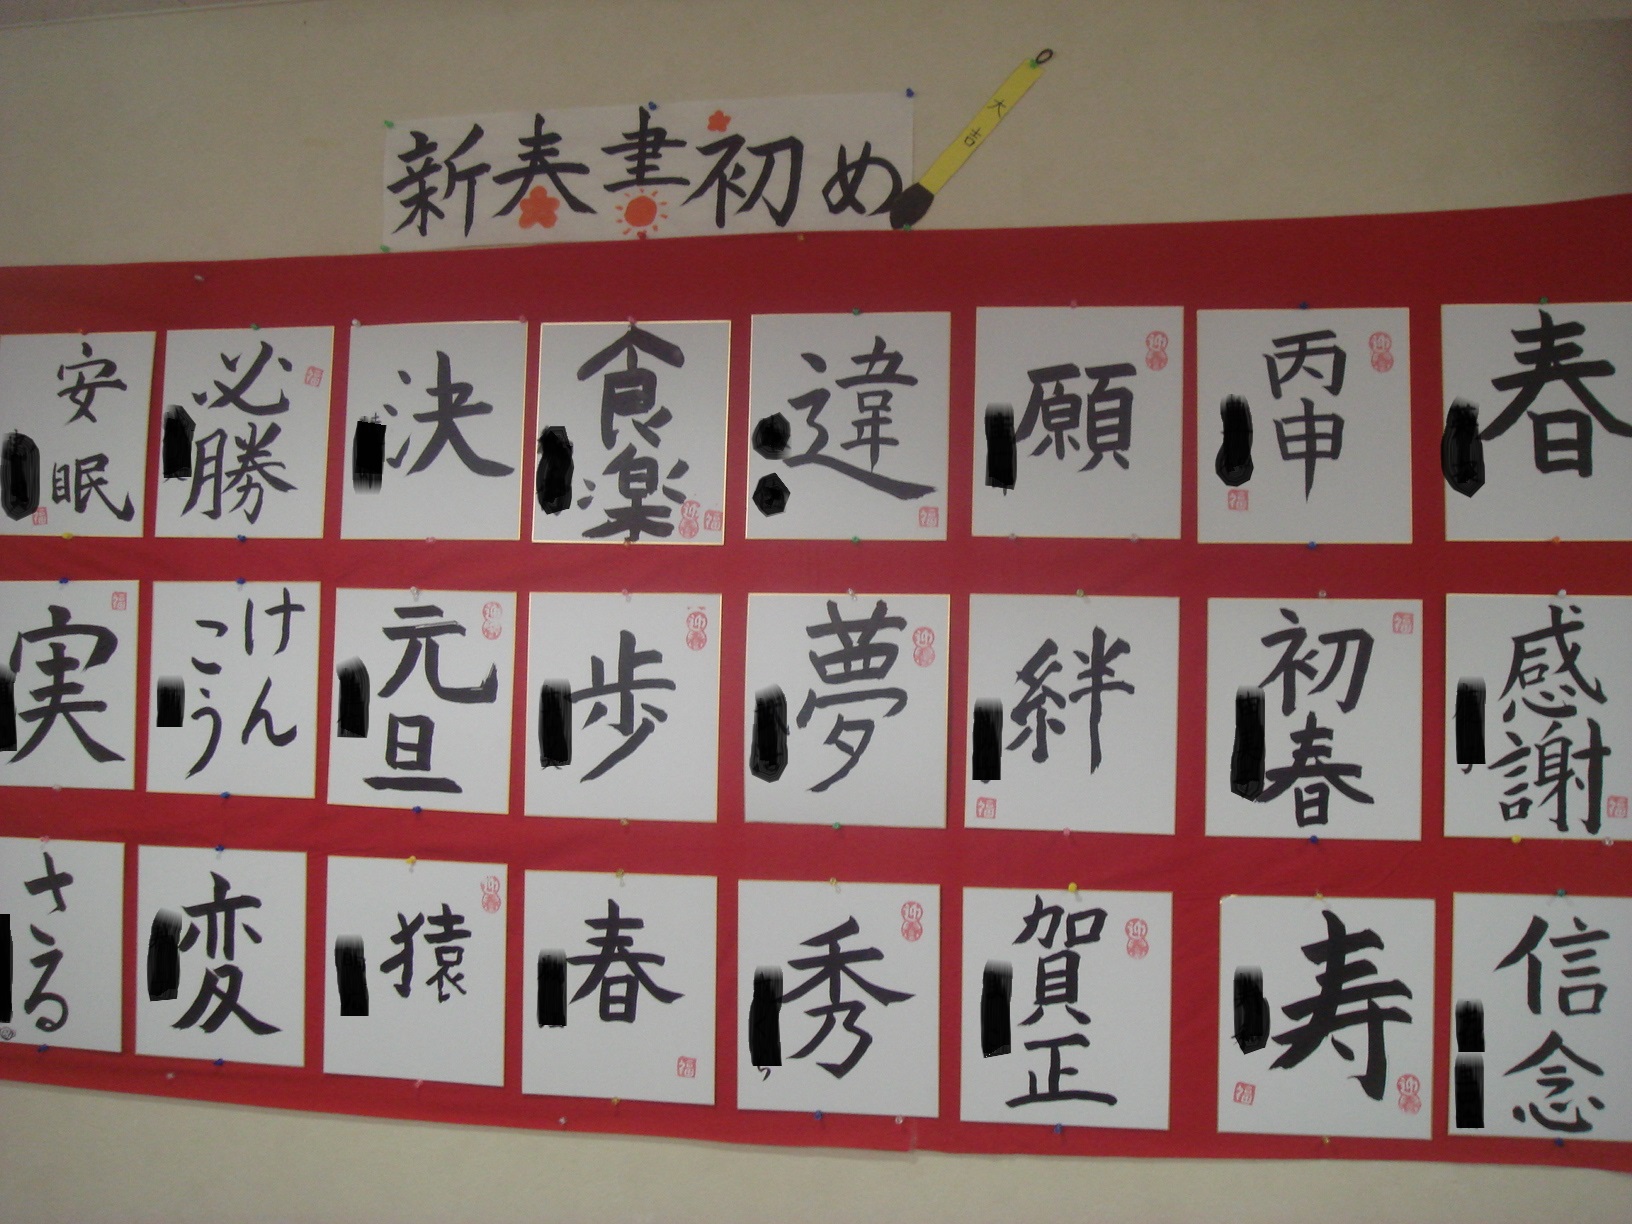 新春書初め
大吉
安眠
必勝
決
食楽
違
願
丙申
春
実
けん
こう
元旦
歩
夢
絆
初春
感謝
さる
変
猿
春
秀
賀正
寿
信念